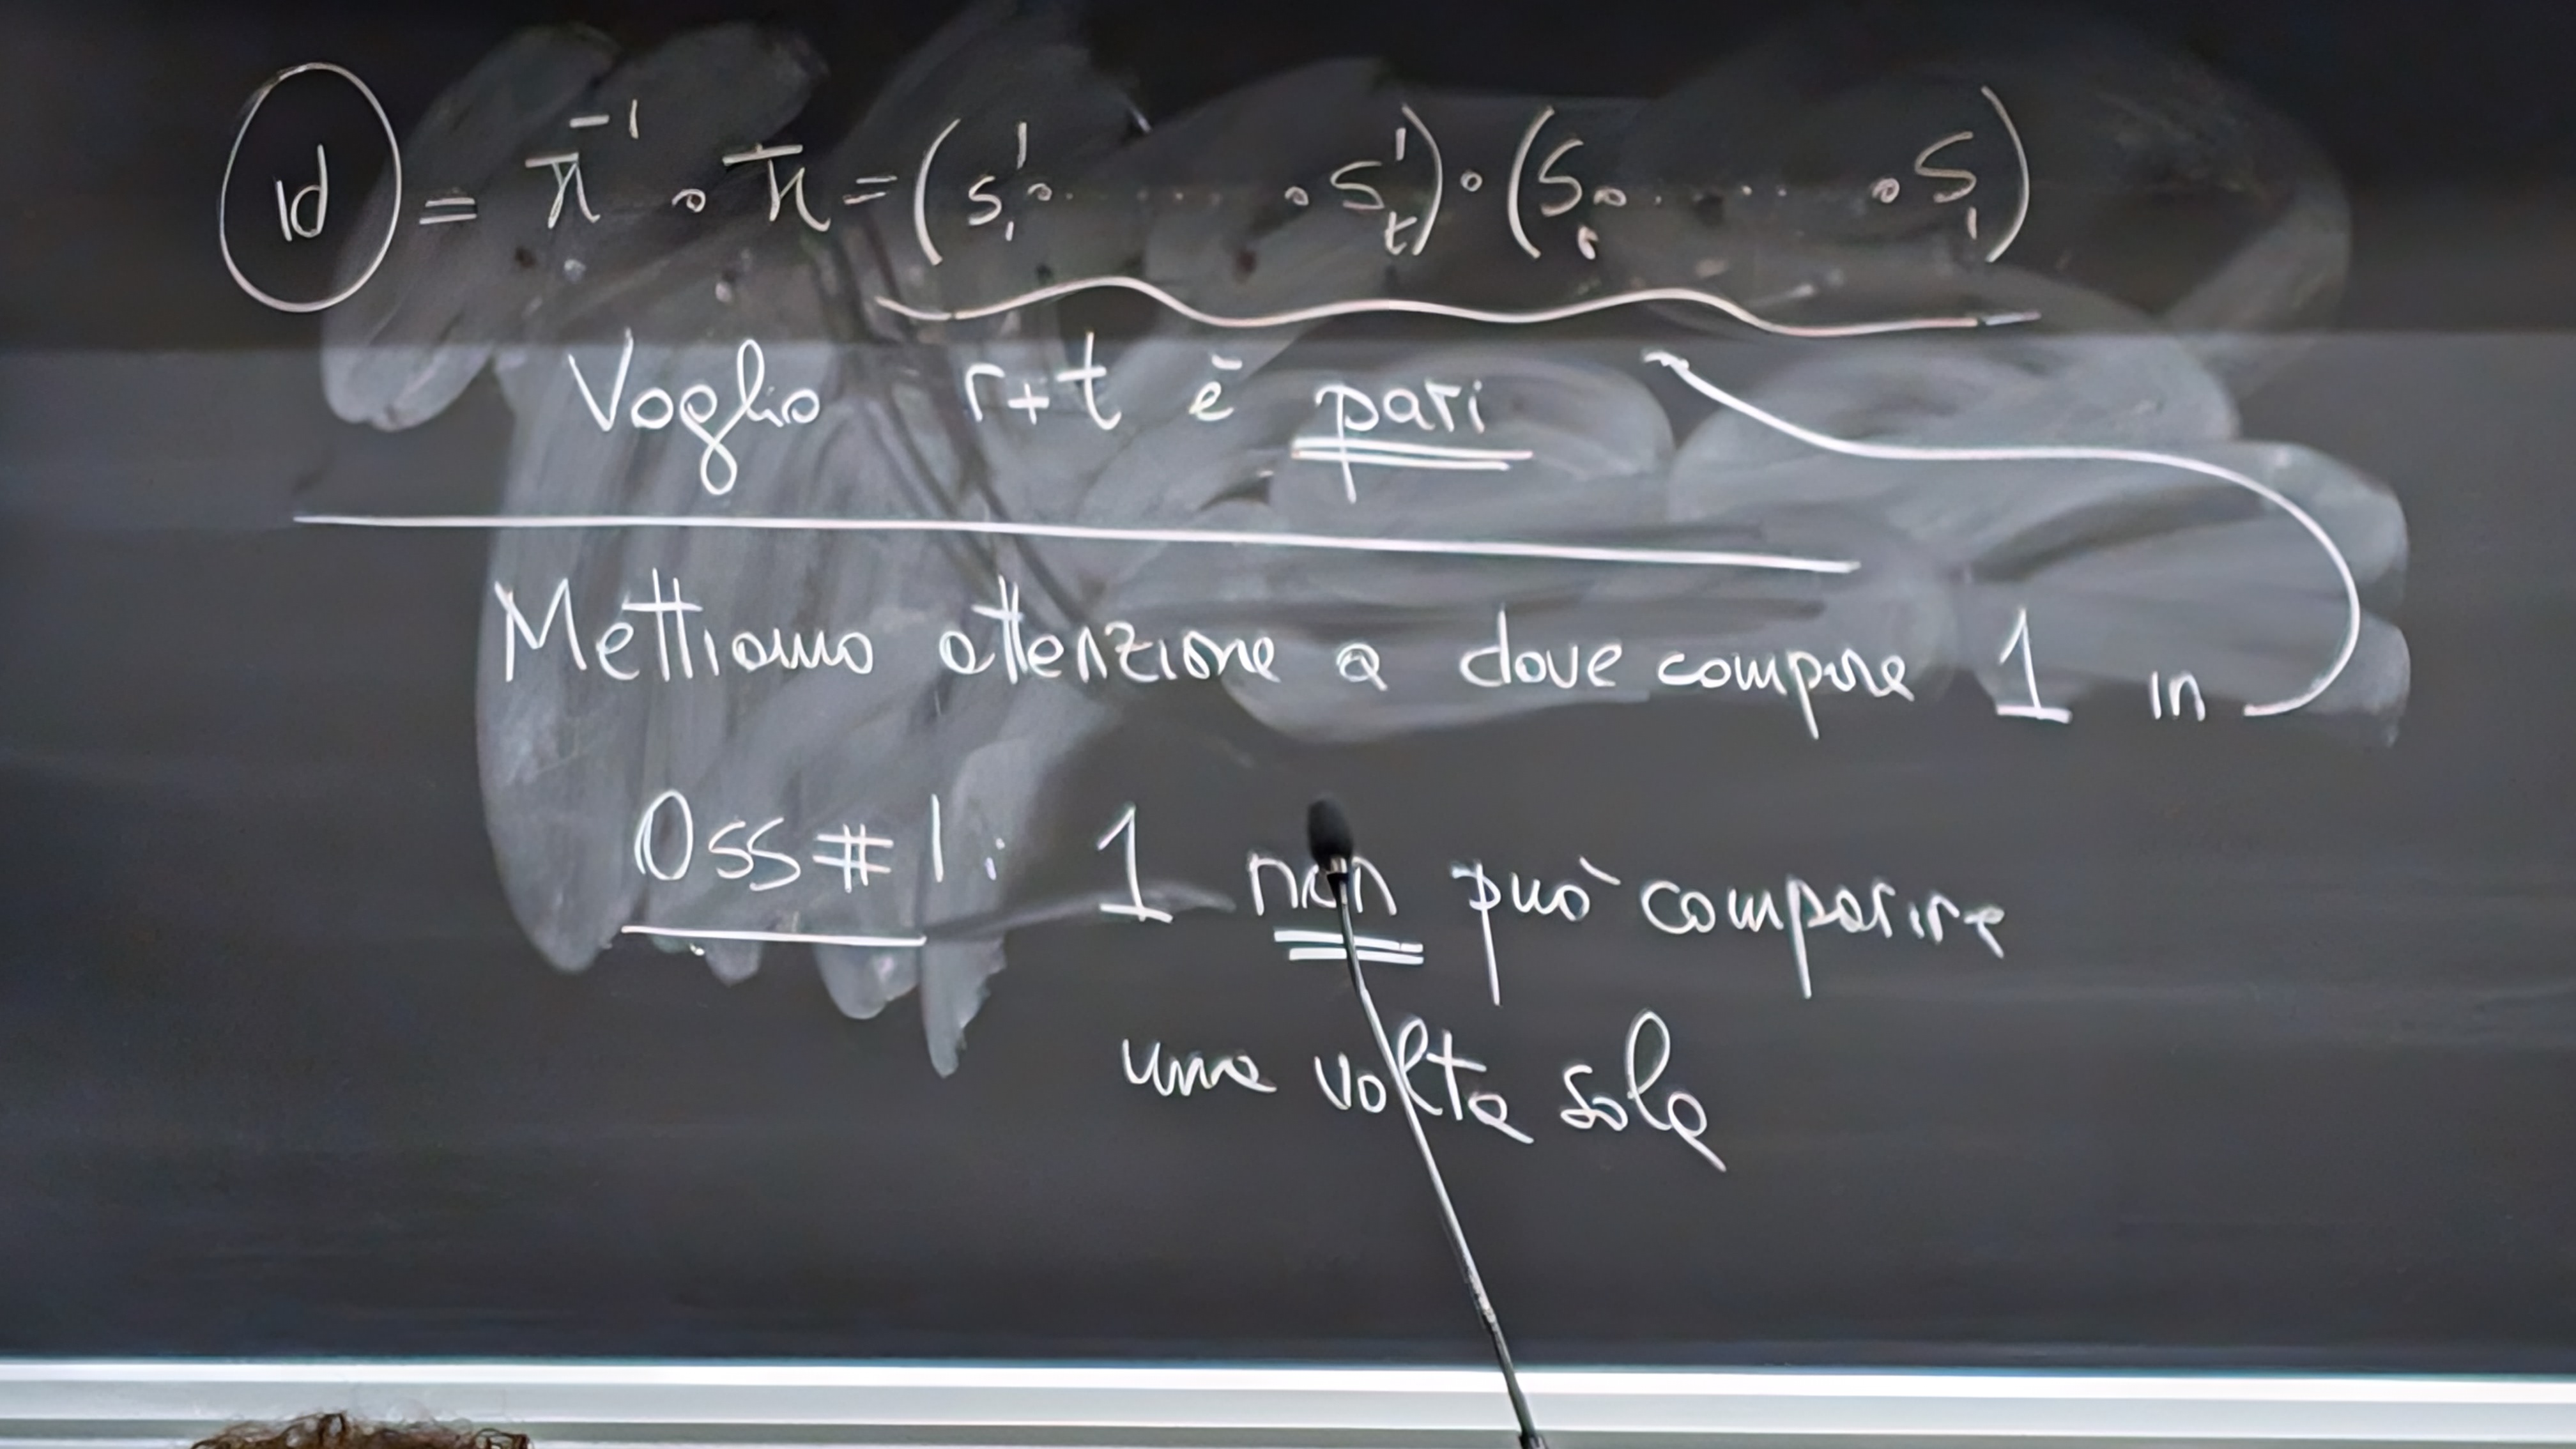 id = π⁻¹ ∘ π = (s'₁ ∘ ..... ∘ s'ₜ) ∘ (sᵣ ∘ ..... ∘ s₁)
Voglio r+t è pari
Mettiamo attenzione a dove compare 1 in
Oss #1: 1 non può comparire
una volta sola